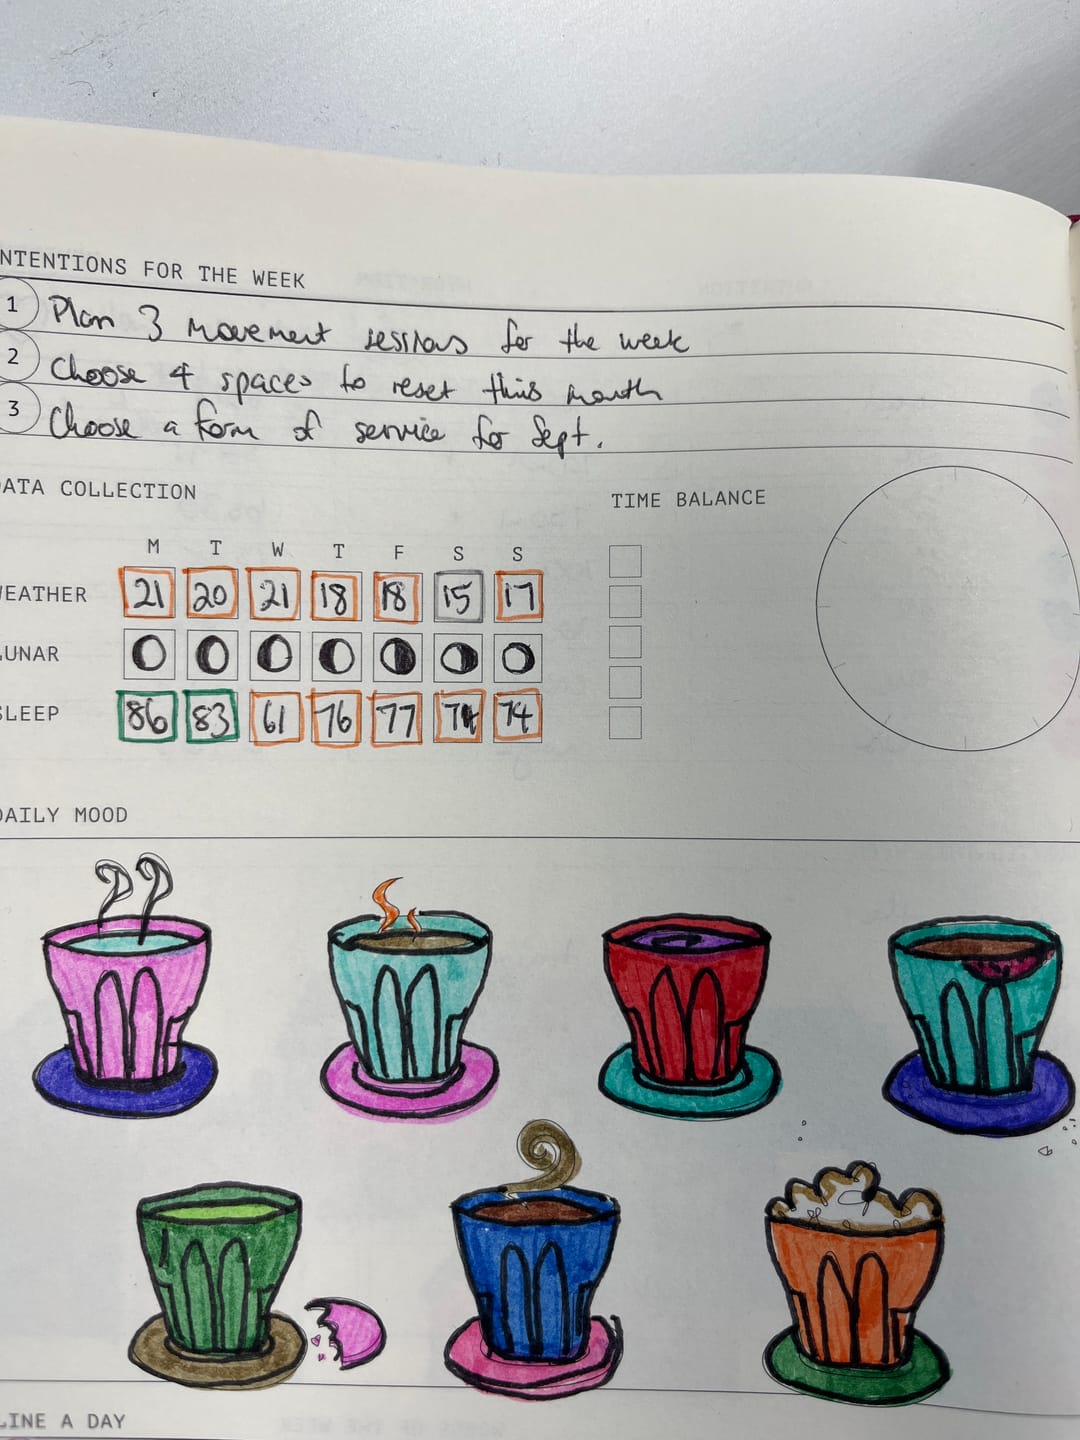 NTENTIONS FOR THE WEEK
1 Plan 3 movement sessions for the week
2 Choose 4 spaces to reset this month
3 Choose a form of service for Sept.
DATA COLLECTION
TIME BALANCE
M T W T F S S
WEATHER 21 20 21 18 18 15 17
LUNAR
SLEEP 86 83 61 76 77 74 74
DAILY MOOD
LINE A DAY